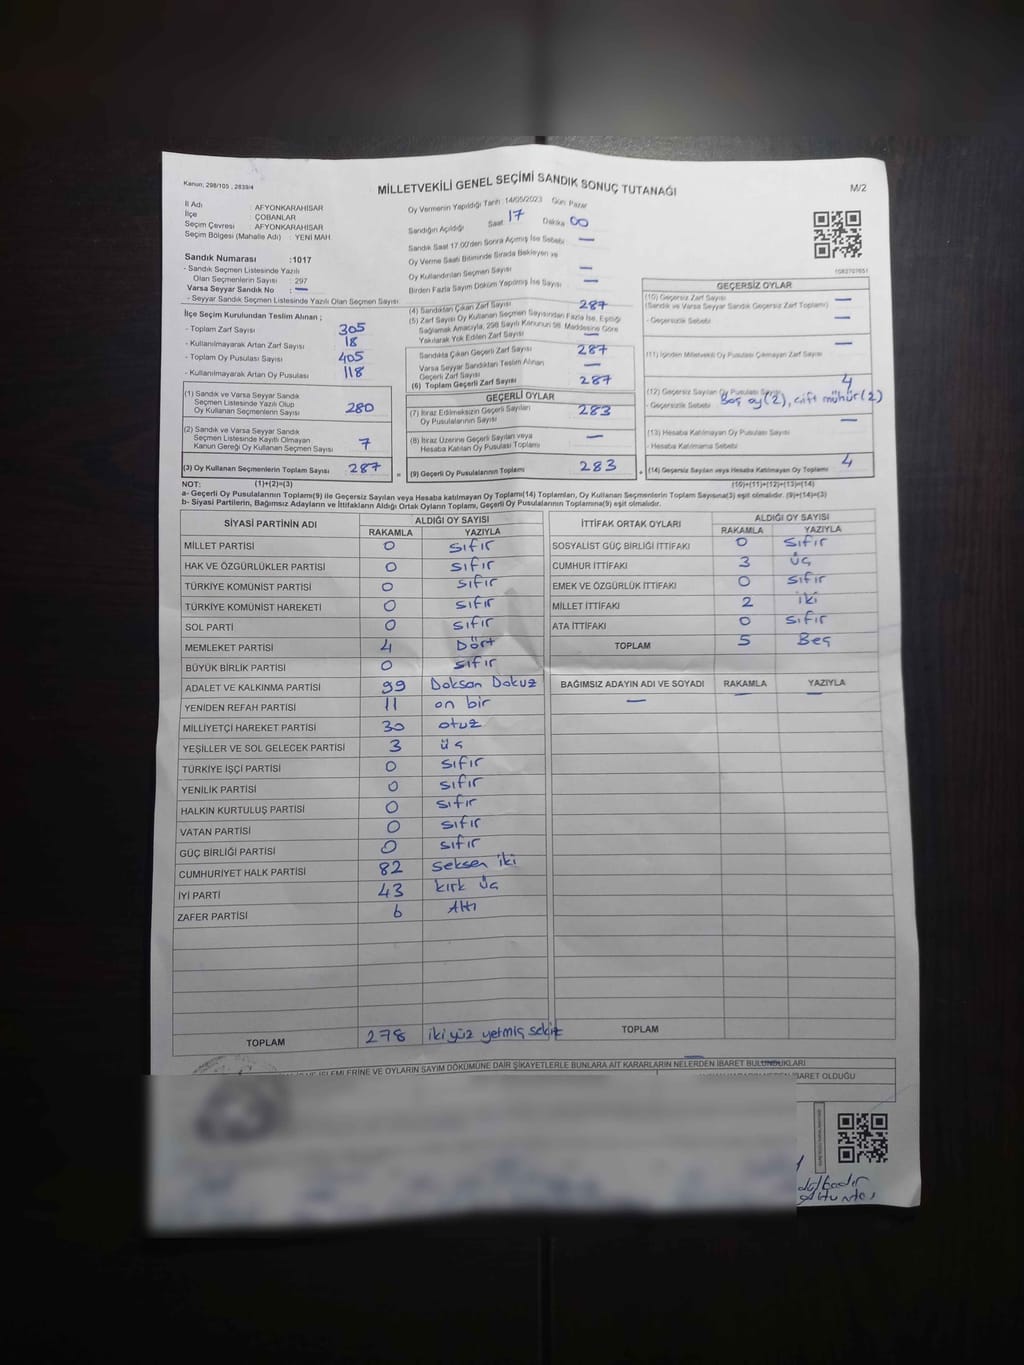 Kanun; 298/105 , 2839/4
MİLLETVEKİLİ GENEL SEÇİMİ SANDIK SONUÇ TUTANAĞI
M/2
İl Adı : AFYONKARAHİSAR
İlçe : ÇOBANLAR
Seçim Çevresi : AFYONKARAHİSAR
Seçim Bölgesi (Mahalle Adı) : YENİ MAH.
Sandık Numarası :1017
- Sandık Seçmen Listesinde Yazılı
Olan Seçmenlerin Sayısı : 297
Varsa Seyyar Sandık No : —
- Seyyar Sandık Seçmen Listesinde Yazılı Olan Seçmen Sayısı
Oy Vermenin Yapıldığı Tarih :14/05/2023 Gün: Pazar
Sandığın Açıldığı Saat 17 Dakika 00
Sandık Saat 17.00'den Sonra Açılmış İse Sebebi —
Oy Verme Saati Bitiminde Sırada Bekleyen ve
Oy Kullandırılan Seçmen Sayısı —
Birden Fazla Sayım Döküm Yapılmış İse Sayısı —
1082707651
İlçe Seçim Kurulundan Teslim Alınan ;
- Toplam Zarf Sayısı : 305
- Kullanılmayarak Artan Zarf Sayısı : 18
- Toplam Oy Pusulası Sayısı : 405
- Kullanılmayarak Artan Oy Pusulası : 118
(1) Sandık ve Varsa Seyyar Sandık
Seçmen Listesinde Yazılı Olup
Oy Kullanan Seçmenlerin Sayısı 280
(2) Sandık ve Varsa Seyyar Sandık
Seçmen Listesinde Kayıtlı Olmayan
Kanun Gereği Oy Kullanan Seçmen Sayısı 7
(3) Oy Kullanan Seçmenlerin Toplam Sayısı 287
(4) Sandıktan Çıkan Zarf Sayısı 287
(5) Zarf Sayısı Oy Kullanan Seçmen Sayısından Fazla İse, Eşitliği
Sağlamak Amacıyla, 298 Sayılı Kanunun 98. Maddesine Göre
Yakılarak Yok Edilen Zarf Sayısı —
Sandıkta Çıkan Geçerli Zarf Sayısı 287
Varsa Seyyar Sandıktan Teslim Alınan
Geçerli Zarf Sayısı —
(6) Toplam Geçerli Zarf Sayısı 287
GEÇERLİ OYLAR
(7) İtiraz Edilmeksizin Geçerli Sayılan
Oy Pusulalarının Sayısı 283
(8) İtiraz Üzerine Geçerli Sayılan veya
Hesaba Katılan Oy Pusulası Toplamı —
= (9) Geçerli Oy Pusulalarının Toplamı 283
GEÇERSİZ OYLAR
(10) Geçersiz Zarf Sayısı —
(Sandık ve Varsa Seyyar Sandık Geçersiz Zarf Toplamı)
- Geçersizlik Sebebi —
(11) İçinden Milletvekili Oy Pusulası Çıkmayan Zarf Sayısı —
(12) Geçersiz Sayılan Oy Pusulası Sayısı 4
- Geçersizlik Sebebi Boş oy(2), çift mühür(2)
(13) Hesaba Katılmayan Oy Pusulası Sayısı —
- Hesaba Katılmama Sebebi
+ (14) Geçersiz Sayılan veya Hesaba Katılmayan Oy Toplamı 4
NOT: (1)+(2)=(3) (10)+(11)+(12)+(13)=(14)
a- Geçerli Oy Pusulalarının Toplamı(9) ile Geçersiz Sayılan veya Hesaba katılmayan Oy Toplamı(14) Toplamları, Oy Kullanan Seçmenlerin Toplam Sayısına(3) eşit olmalıdır. (9)+(14)=(3)
b- Siyasi Partilerin, Bağımsız Adayların ve İttifakların Aldığı Ortak Oyların Toplamı, Geçerli Oy Pusulalarının Toplamına(9) eşit olmalıdır.
SİYASİ PARTİNİN ADI ALDIĞI OY SAYISI
RAKAMLA YAZIYLA
MİLLET PARTİSİ 0 sıfır
HAK VE ÖZGÜRLÜKLER PARTİSİ 0 sıfır
TÜRKİYE KOMÜNİST PARTİSİ 0 sıfır
TÜRKİYE KOMÜNİST HAREKETİ 0 sıfır
SOL PARTİ 0 sıfır
MEMLEKET PARTİSİ 4 Dört
BÜYÜK BİRLİK PARTİSİ 0 sıfır
ADALET VE KALKINMA PARTİSİ 99 Doksan Dokuz
YENİDEN REFAH PARTİSİ 11 on bir
MİLLİYETÇİ HAREKET PARTİSİ 30 otuz
YEŞİLLER VE SOL GELECEK PARTİSİ 3 üç
TÜRKİYE İŞÇİ PARTİSİ 0 sıfır
YENİLİK PARTİSİ 0 sıfır
HALKIN KURTULUŞ PARTİSİ 0 sıfır
VATAN PARTİSİ 0 sıfır
GÜÇ BİRLİĞİ PARTİSİ 0 sıfır
CUMHURİYET HALK PARTİSİ 82 seksen iki
İYİ PARTİ 43 kırk üç
ZAFER PARTİSİ 6 Altı
TOPLAM 278 iki yüz yetmiş sekiz
İTTİFAK ORTAK OYLARI ALDIĞI OY SAYISI
RAKAMLA YAZIYLA
SOSYALİST GÜÇ BİRLİĞİ İTTİFAKI 0 sıfır
CUMHUR İTTİFAKI 3 üç
EMEK VE ÖZGÜRLÜK İTTİFAKI 0 sıfır
MİLLET İTTİFAKI 2 iki
ATA İTTİFAKI 0 sıfır
TOPLAM 5 Beş
BAĞIMSIZ ADAYIN ADI VE SOYADI RAKAMLA YAZIYLA
— — —
TOPLAM
İŞLEMLERİNE VE OYLARIN SAYIM DÖKÜMÜNE DAİR ŞİKAYETLERLE BUNLARA AİT KARARLARIN NELERDEN İBARET BULUNDUKLARI
İBARET OLDUĞU